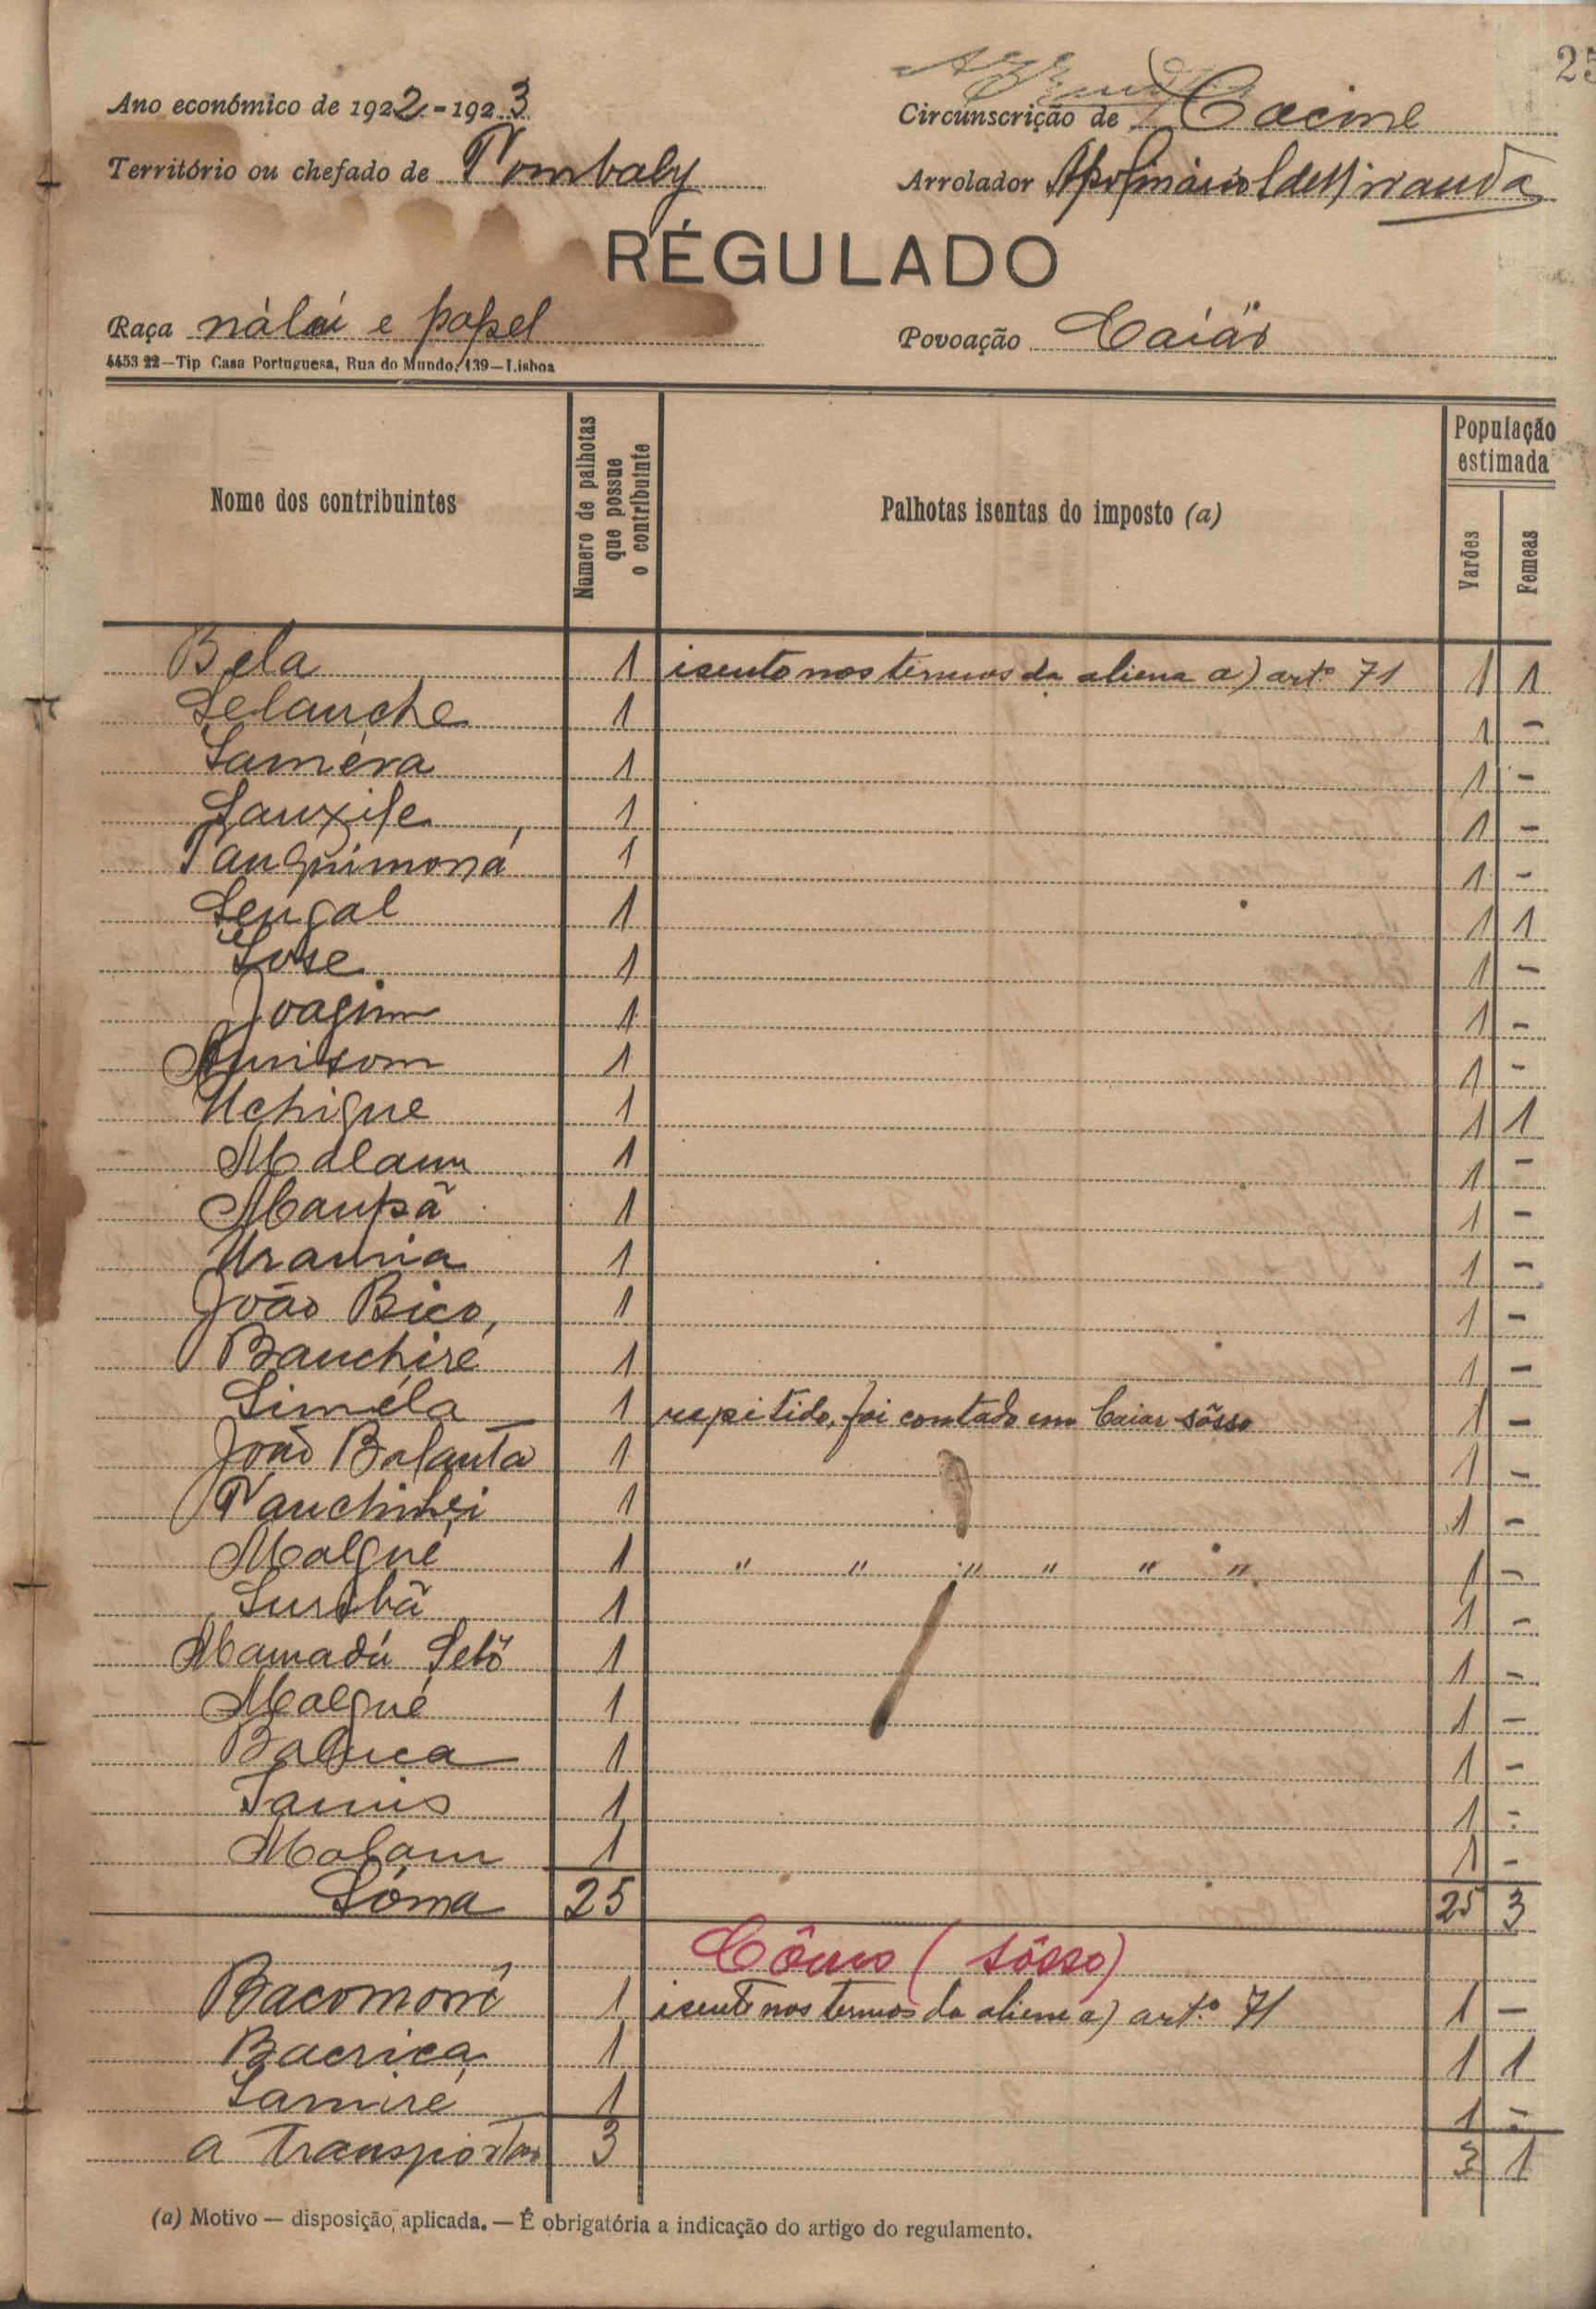 25
Ano económico de 1922-1923
Circunscrição de Cacine
Território ou chefado de Tombaly
Arrolador Apolinário C de Miranda
RÉGULADO
Raça nálú e papel
Povoação Caiár
4453 22—Tip Casa Portuguesa, Rua do Mundo, 139—Lisboa
Nome dos contribuintes
Numero de palhotas que possue o contribuinte
Palhotas isentas do imposto (a)
População estimada
Varões
Femeas
Bela 1 isento nos termos da aliena a) artº 71 1 1
Selanche 1 1 -
Saméra 1 1 -
Sauxife 1 1 -
Tanquimoná 1 1 -
Sengal 1 1 1
José 1 1 -
Joaqim 1 1 -
1 1 -
Uchigue 1 1 1
Malaun 1 1 -
Maupã 1 1 -
Urauria 1 1 -
João Bico 1 1 -
Bauchiré 1 1 -
Siméla 1 repitido, foi contado em Caiar sôsso 1 -
João Balanta 1 1 -
1 1 -
Malgué 1 " " " " " " 1 -
1 1 -
Mamadú Setô 1 1 -
Malgué 1 1 -
1 1 -
1 1 -
Malam 1 1 -
Sôma 25 25 3
Cômo (sôsso)
Bacomoné 1 isento nos termos da aliena a) artº 71 1 -
Bacrica 1 1 1
Samiré 1 1 -
a Transportar 3 3 1
(a) Motivo — disposição aplicada. — É obrigatória a indicação do artigo do regulamento.